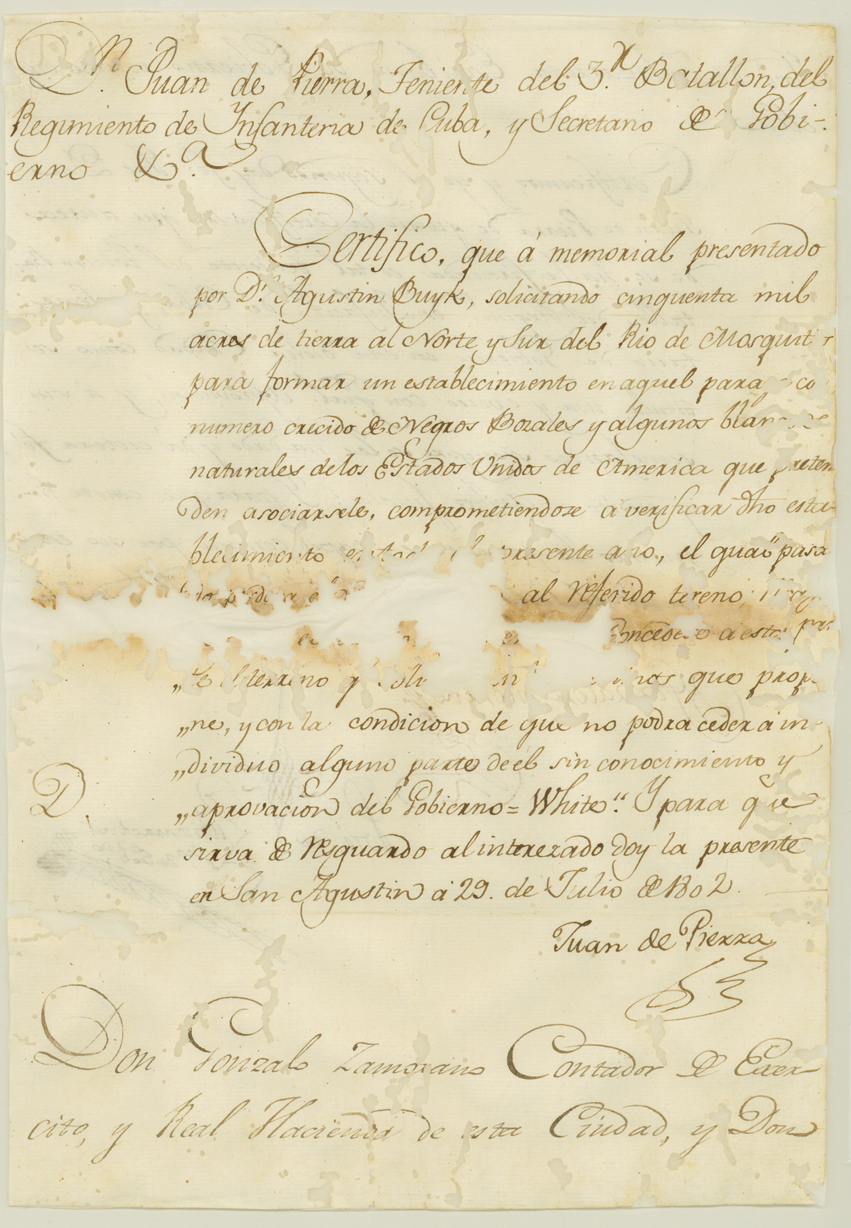 Dn. Juan de Pierra, Teniente del 3.r Batallon, del
Regimiento de Infanteria de Cuba, y Secretario de Gobi-
erno &.a
Certifico, que á memorial presentado
por Dn. Agustin Buyk, solicitando cinquenta mil
acres de tierra al Norte y Sur del Rio de Mosquit
para formar un establecimiento en aquel para co
numero crecido de Negros Bozales y algunos blan
naturales de los Estados Unidos de America que preten
den asociarsele, comprometiendose á verificar dho esta-
blecimiento presente año, el qual pasa
al referido tereno
Concedese a este
„ terreno que prop
„ne, y con la condicion de que no podra ceder á in-
„dividuo alguno parte de el sin conocimiento y
D. „aprovacion del Gobierno = White“. Y para que
sirva de resguardo al interezado doy la presente
en San Agustin á 29. de Julio de 1802
Juan de Pierra
Don Gonzalo Zamorano Contador de Exer-
cito, y Real Hacienda de esta Ciudad, y Don